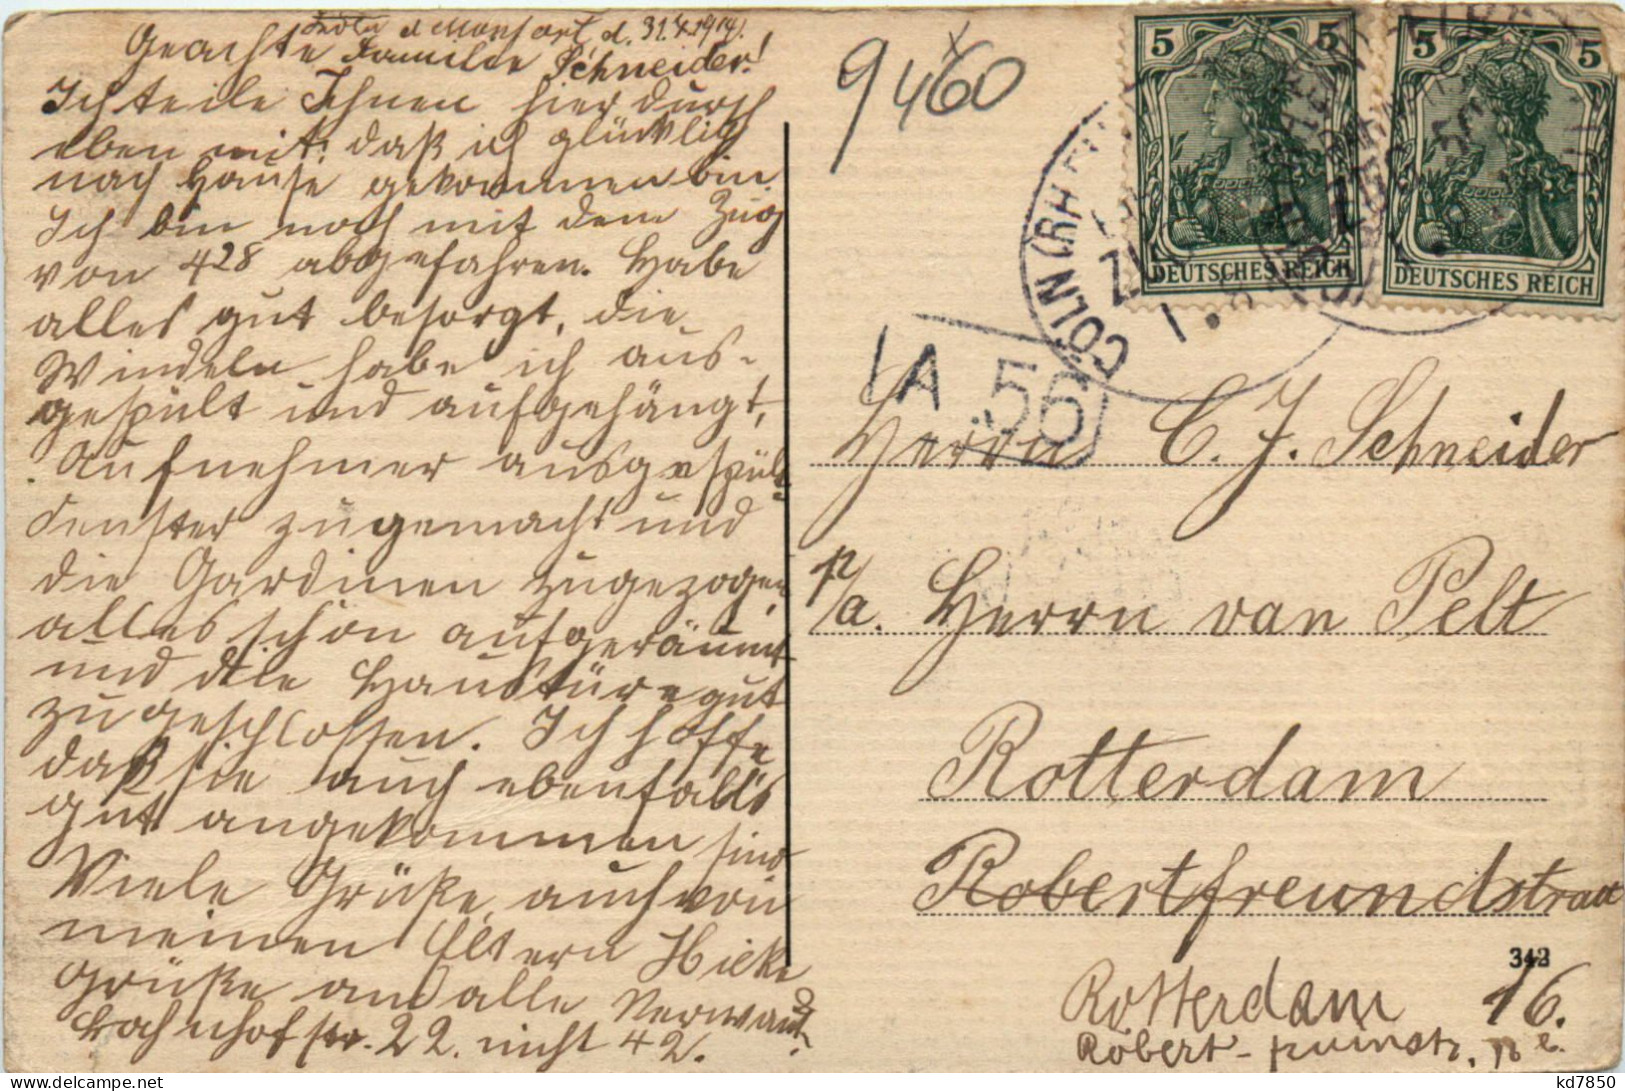 d. 31.7.1914.
Geachte Familie Schneider!
Ich teile Ihnen hierdurch
eben mit, daß ich glücklich
nach Hause gekommen bin.
Ich bin noch mit dem Zug
von 4 28 abgefahren. Habe
alles gut besorgt, die
Windeln habe ich aus-
gespült und aufgehängt,
Aufnehmer ausgespült
Fenster zugemacht und
die Gardinen zugezogen,
alles schön aufgeräumt
und die Haustüre gut
zugeschlossen. Ich hoffe
daß sie auch ebenfalls
gut angekommen sind
Viele Grüße auch von
meinen Eltern
Grüße an alle Verwandt.
Bahnhofstr. 22. nicht 42.
9460
5 5
DEUTSCHES REICH
5 5
DEUTSCHES REICH
CÖLN (RHEIN)
IA 56
Herrn C. J. Schneider
p/a. Herrn van Pelt
Rotterdam
Robertfreundstraat
342
16.
Rotterdam
Robert-
kd7850